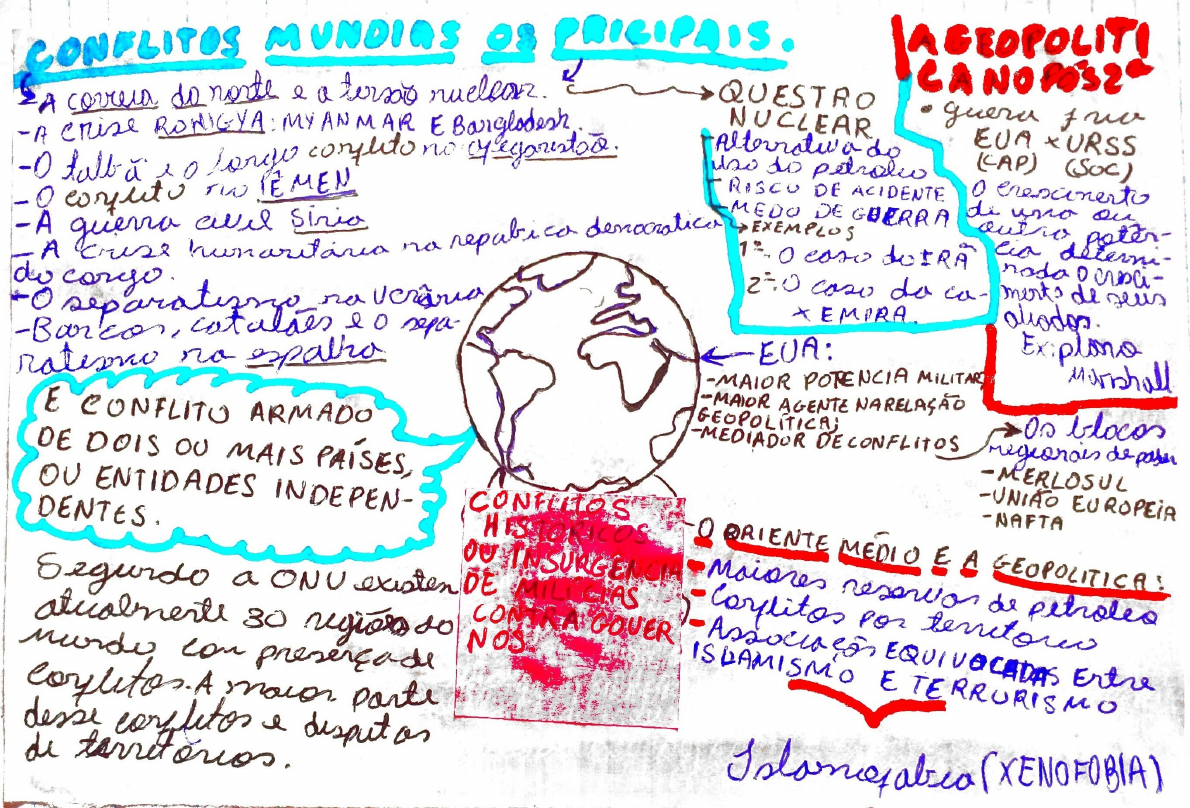 CONFLITOS MUNDIAS OS PRICIPAIS.
- A correia do norte e a tersão nuclear.
- A CRISE ROHIGYA: MYANMAR E Bargladesh.
- O talbã e o longo conflito no afegaristão.
- O conflito no IÊMEN
- A guerra civil Síria
- A crise humanitária na repubica democratica
do congo.
- O separatismo na Ucrânia
- Barcos, catalães e o sepa-
ratismo na espalha
E CONFLITO ARMADO
DE DOIS OU MAIS PAÍSES,
OU ENTIDADES INDEPEN-
DENTES.
Segundo a ONU existen
atualmente 30 regiões do
mundo com presença de
conflitos. A maior parte
desse conflitos e disputas
de territórios.
CONFLITOS
HISTÓRICOS
OU INSURGÊNCIA
DE MILÍCIAS
CONTRA GOUER
NOS
QUESTRO
NUCLEAR
- Alternativa do
uso do petroleo
- RISCO DE ACIDENTE
- MEDO DE GUERRA
EXEMPLOS
1º- O caso do IRÃ
2º- O caso da co-
x EMIRA.
EUA:
- MAIOR POTENCIA MILITAR
- MAIOR AGENTE NA RELAÇÃO
GEOPOLÍTICA;
- MEDIADOR DE CONFLITOS
A GEOPOLITI
CA NO PÓS 2ª
• guerra fria
EUA x URSS
(CAP) (SOC)
O crescimento
de uma ou
outra potên-
cia determi-
nada o cresci-
mento de seus
aliados.
Ex: plano
Marshall
Os blocos
regionais de poder
- MERLOSUL
- UNIÃO EUROPEIA
- NAFTA
- O ORIENTE MÉDIO E A GEOPOLITICA:
- Maiores reservas de petroleo
- Conflitos por território
- Associação EQUIVOCADAS Entre
ISLAMISMO E TERRURISMO
Islamofabia (XENOFOBIA)